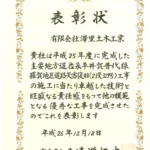 表彰状
有限会社澤里土木工業
貴社は平成25年度に完成した
主要地方道岩泉平井賀普代線
羅賀地区道路災害復旧(23災679)工事
の施工に当たり卓越した技術と
旺盛なる責任感をもって他の模範と
なる優秀な工事を完成させた
のでこれを表彰します
平成26年12月18日